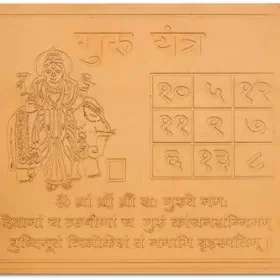 गुरु यंत्र
१० ५ १२
११ ९ ७
६ १३ ८
ॐ ग्रां ग्रीं ग्रौं सः गुरुवे नमः
देवानां च ऋषीणां च गुरुं कांचनसन्निभम्
बुद्धिभूतं त्रिलोकेशं तं नमामि बृहस्पतिम्।